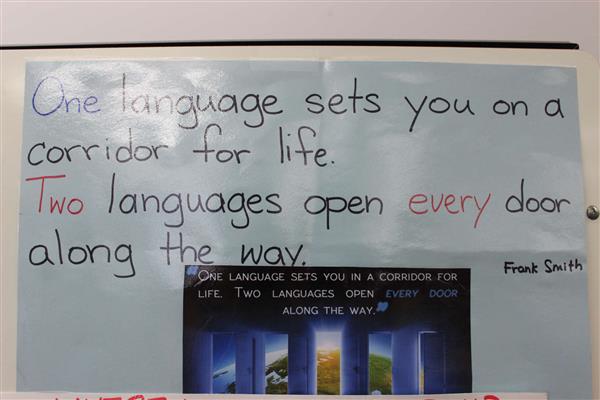 One language sets you on a
corridor for life.
Two languages open every door
along the way.
Frank Smith
"ONE LANGUAGE SETS YOU IN A CORRIDOR FOR
LIFE. TWO LANGUAGES OPEN EVERY DOOR
ALONG THE WAY."